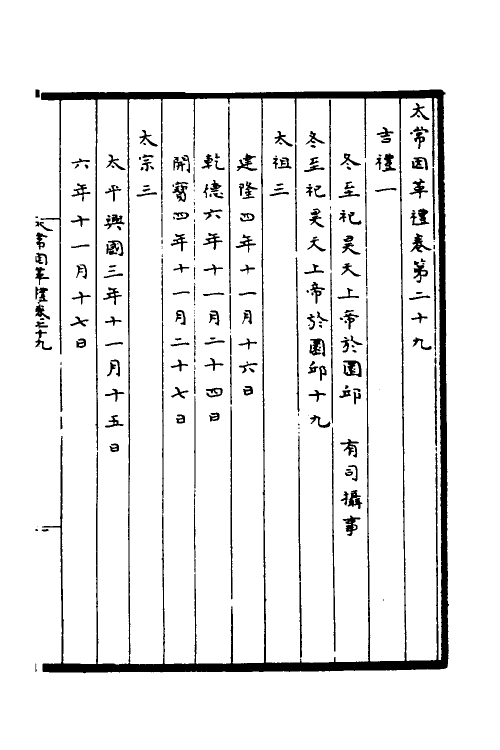 太常因革禮卷第二十九
吉禮一
冬至祀昊天上帝於圜邱 有司攝事
冬至祀昊天上帝於圜邱十九
太祖三
建隆四年十一月十六日
乾德六年十一月二十四日
開寶四年十一月二十七日
太宗三
太平興國三年十一月十五日
六年十一月十七日
太常因革禮卷二十九